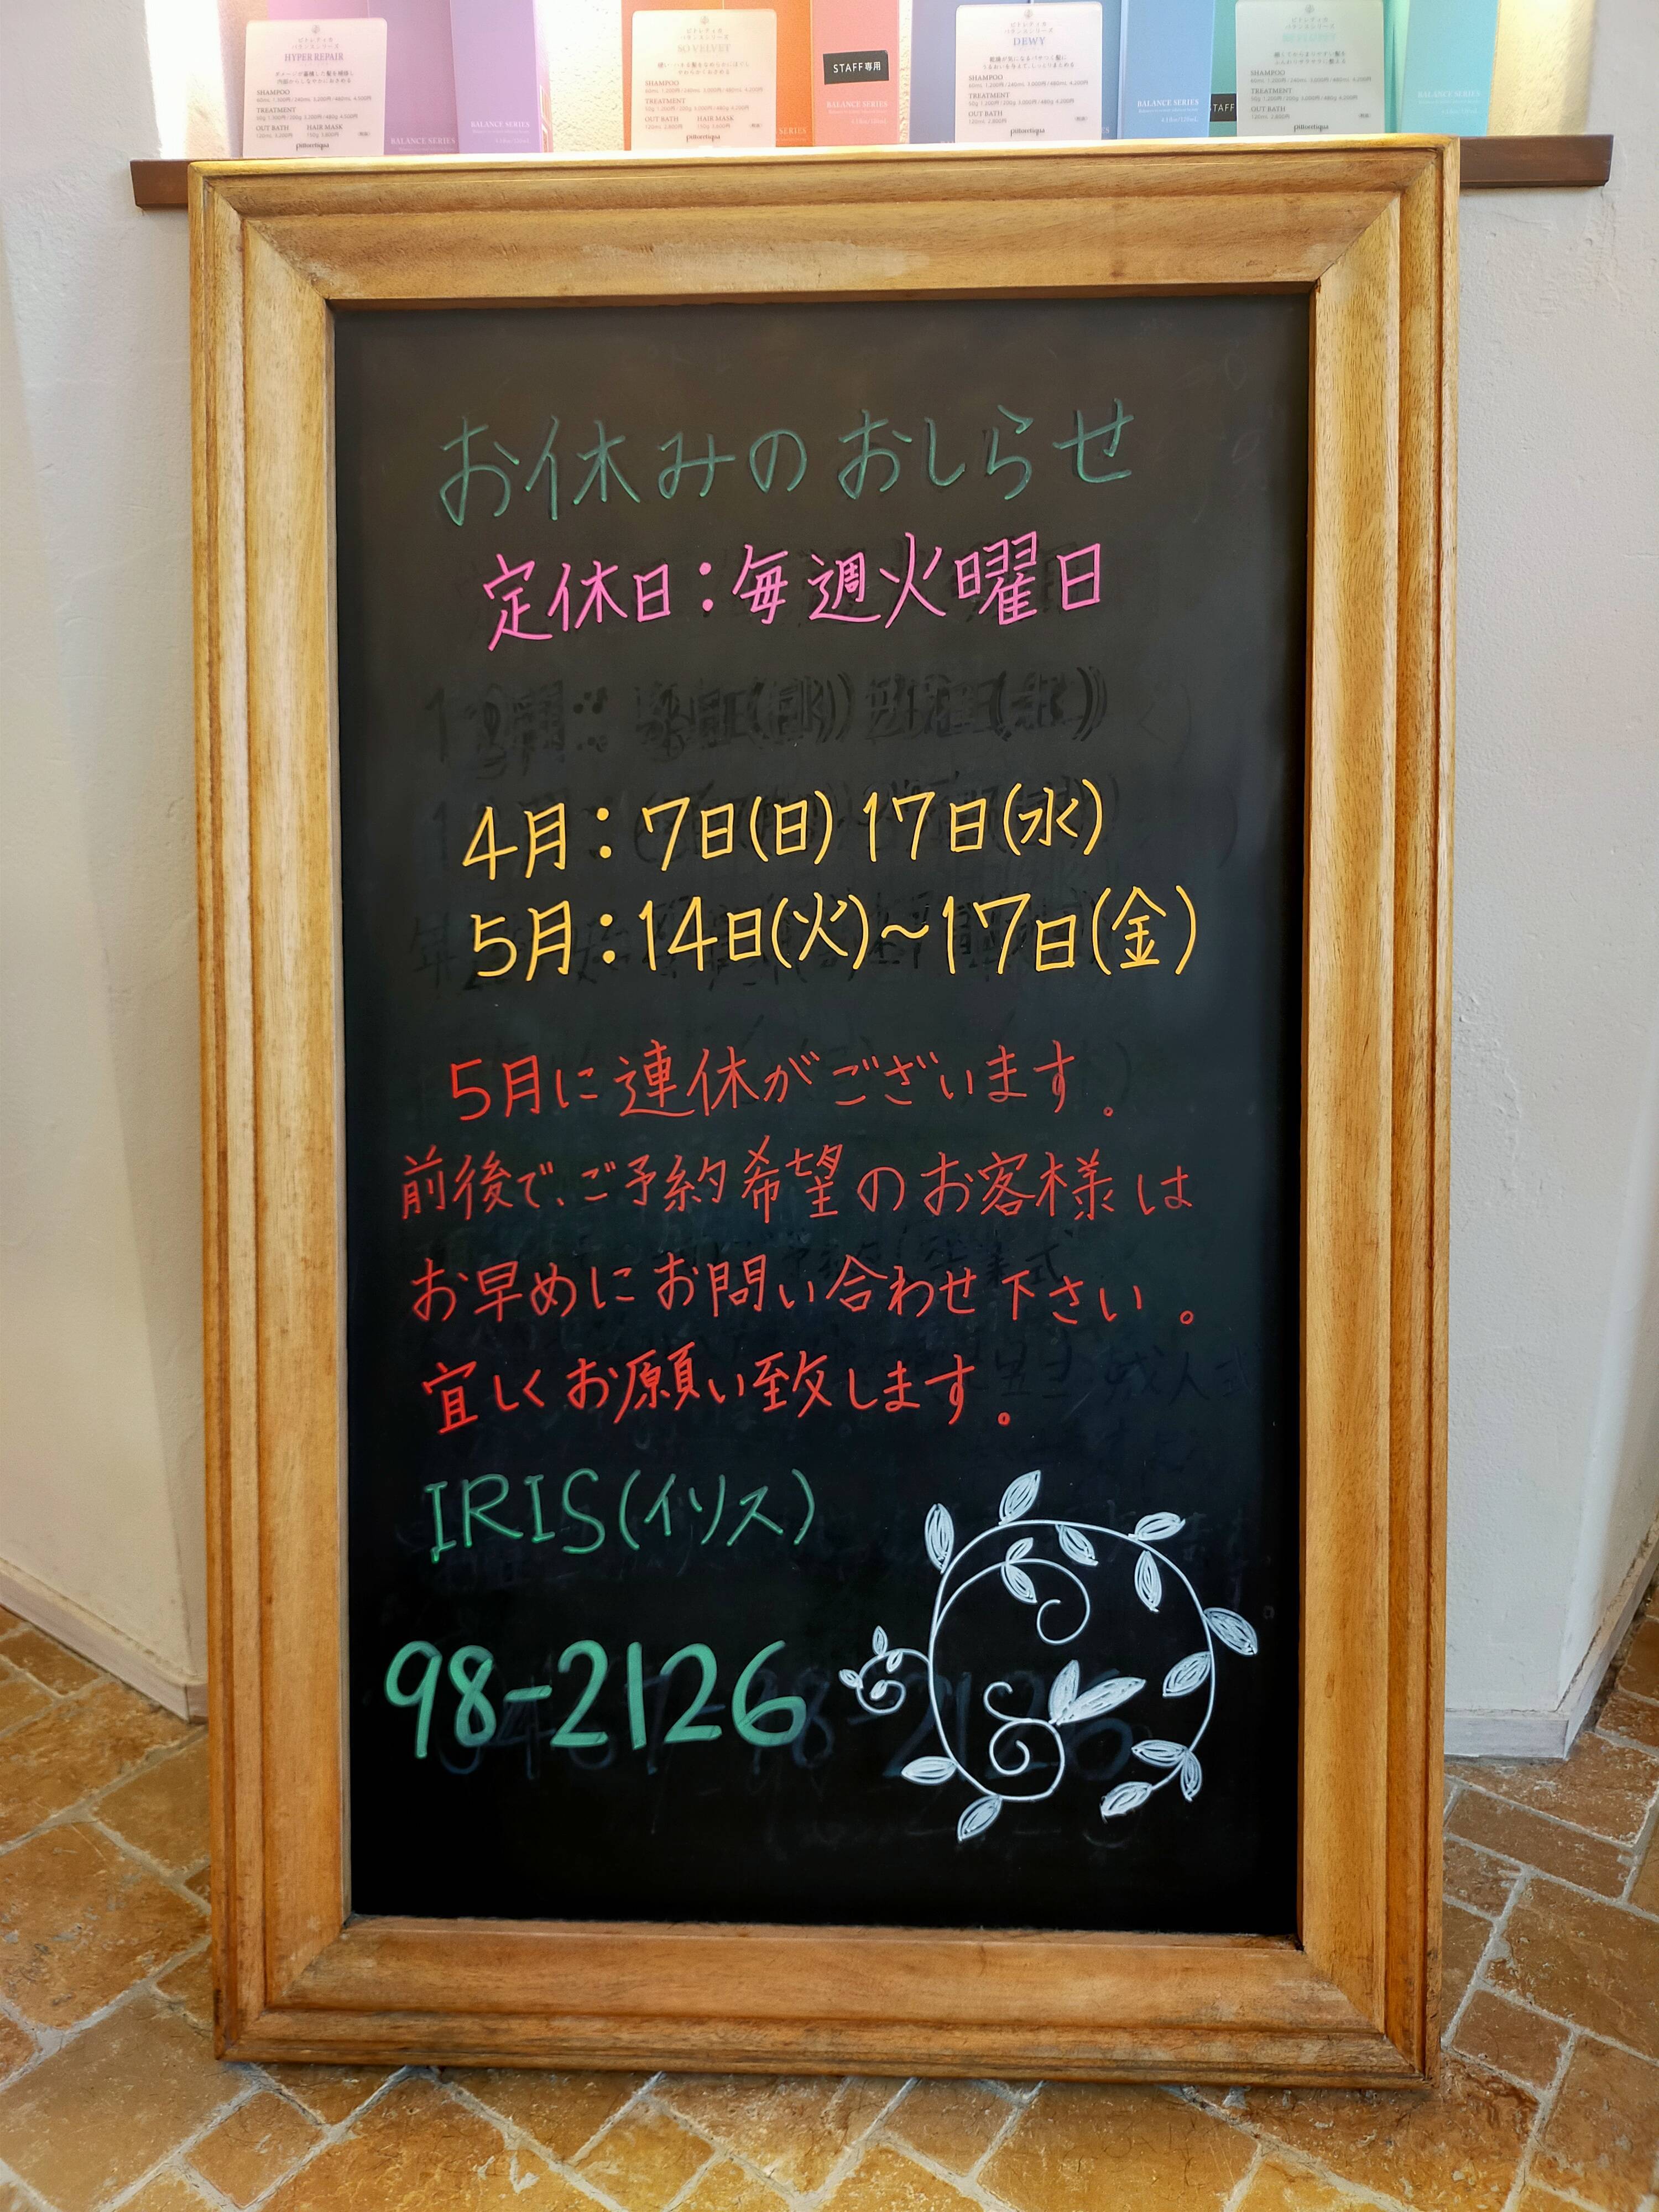 HYPER REPAIR
SHAMPOO
TREATMENT
OUT BATH HAIR MASK
BALANCE SERIES
BALANCE SERIES
SO VELVET
SHAMPOO
TREATMENT
OUT BATH HAIR MASK
STAFF専用
BALANCE SERIES
DEWY
SHAMPOO
TREATMENT
OUT BATH
BALANCE SERIES
STAFF
SHAMPOO
TREATMENT
OUT BATH
BALANCE SERIES
お休みのおしらせ
定休日：毎週火曜日
4月：7日(日) 17日(水)
5月：14日(火)〜17日(金)
5月に連休がございます。
前後で、ご予約希望のお客様は
お早めにお問い合わせ下さい。
宜しくお願い致します。
IRIS(イリス)
98-2126